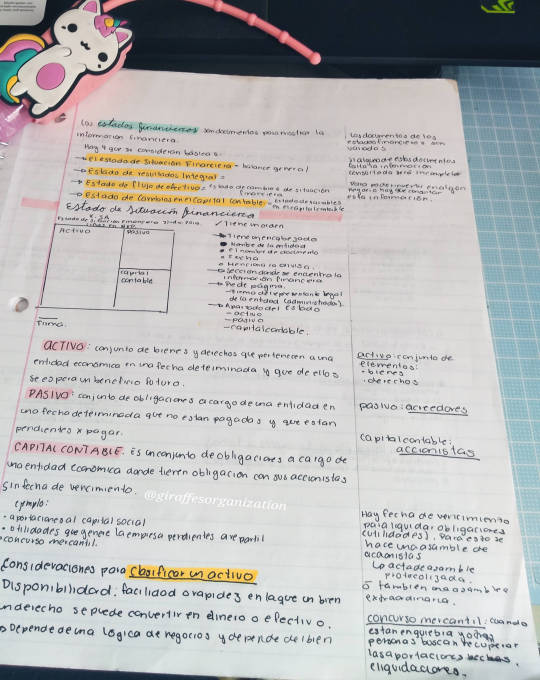 Los estados financieros son documentos para mostrar la
información financiera.
Hay 4 que se consideran básicos:
→ el estado de situación Financiera - balance general
→ Estado de resultados Integral =
→ Estado de flujo de efectivo = estado de cambios de situación
financiera
→ Estado de Cambios en el Capital Contable = estado de variables
en el capital contable
Los documentos de los
estados financieros son
variados
si alguno de estos documentos
falta la información
consultada será incompleta
Para poder invertir en algún
negocio hay que consultar
esta información.
Estado de Situación financiera
X. SA
Activo
Pasivo
capital
contable
Firma.
✓ Tiene un orden
→ Tiene un encabezado
• Nombre de la entidad
• el nombre de documento
• Fecha
• Menciona la división.
→ sección donde se encuentra la
información financiera
→ Pie de página.
- firma del representante legal
de la entidad (administrador).
→ Apartado del Estado
- activo
- pasivo
- capital contable.
ACTIVO: conjunto de bienes y derechos que pertenecen a una
entidad económica en una fecha determinada y que de ellos
se espera un beneficio futuro.
activo: conjunto de
elementos:
• bienes
• derechos
PASIVO: conjunto de obligaciones a cargo de una entidad en
una fecha determinada que no estan pagados y que estan
pendientes x pagar.
pasivo: acreedores
CAPITAL CONTABLE. Es un conjunto de obligaciones a cargo de
una entidad económica donde tienen obligación con sus accionistas
sin fecha de vencimiento.
capital contable:
accionistas
@giraffesorganization
ejemplo:
• aportaciones al capital social
• utilidades que genere la empresa pendientes a repartir
concurso mercantil.
Hay fecha de vencimiento
para liquidar obligaciones
(utilidades). Para esto se
hace una asamble de
accionistas
↳ acta de asamble
protocolizada.
ó también una asamblea
extraordinaria.
Consideraciones para clasificar un activo
Disponibilidad: facilidad o rapidez en la que un bien
un derecho se puede convertir en dinero o efectivo.
Depende de una lógica de negocios y depende del bien
concurso mercantil: cuando
estan en quiebra y otras
personas buscan recuperar
las aportaciones
e liquidaciones.